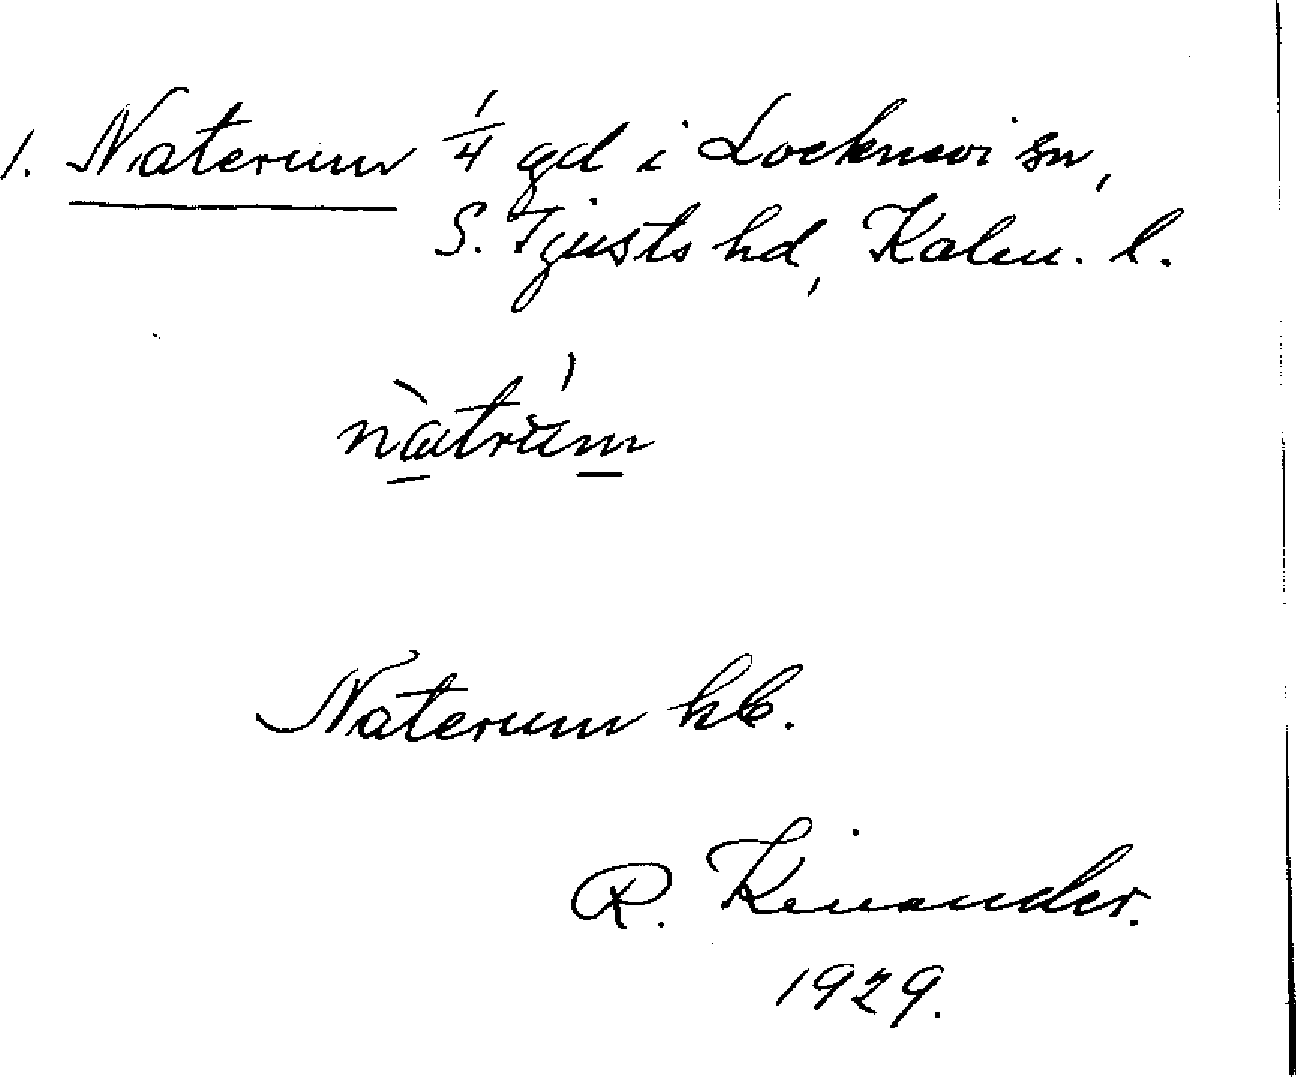 1. Naterum 1/4 gd i Locknevi sn,
S. Tjusts hd, Kalm. l.
nàtrùm
Naterum kb.
R. Kinander.
1929.